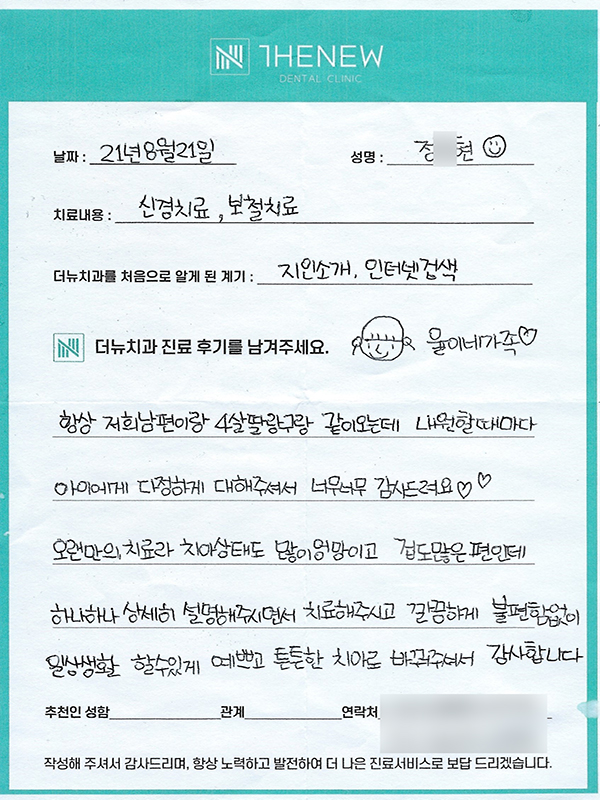 THENEW
DENTAL CLINIC
날짜 : 21년 8월 21일
성명 : 정 현
치료내용 : 신경치료, 보철치료
더뉴치과를 처음으로 알게 된 계기 : 지인소개, 인터넷검색
더뉴치과 진료 후기를 남겨주세요.
율이네가족♡
항상 저희남편이랑 4살딸랑구랑 같이오는데 내원할때마다
아이에게 다정하게 대해주셔서 너무너무 감사드려요♡♡
오랜만의 치료라 치아상태도 많이엉망이고 겁도많은편인데
하나하나 상세히 설명해주시면서 치료해주시고 깔끔하게 불편함없이
일상생활 할수있게 예쁘고 튼튼한 치아로 바꿔주셔서 감사합니다
추천인 성함 관계 연락처
작성해 주셔서 감사드리며, 항상 노력하고 발전하여 더 나은 진료서비스로 보답 드리겠습니다.